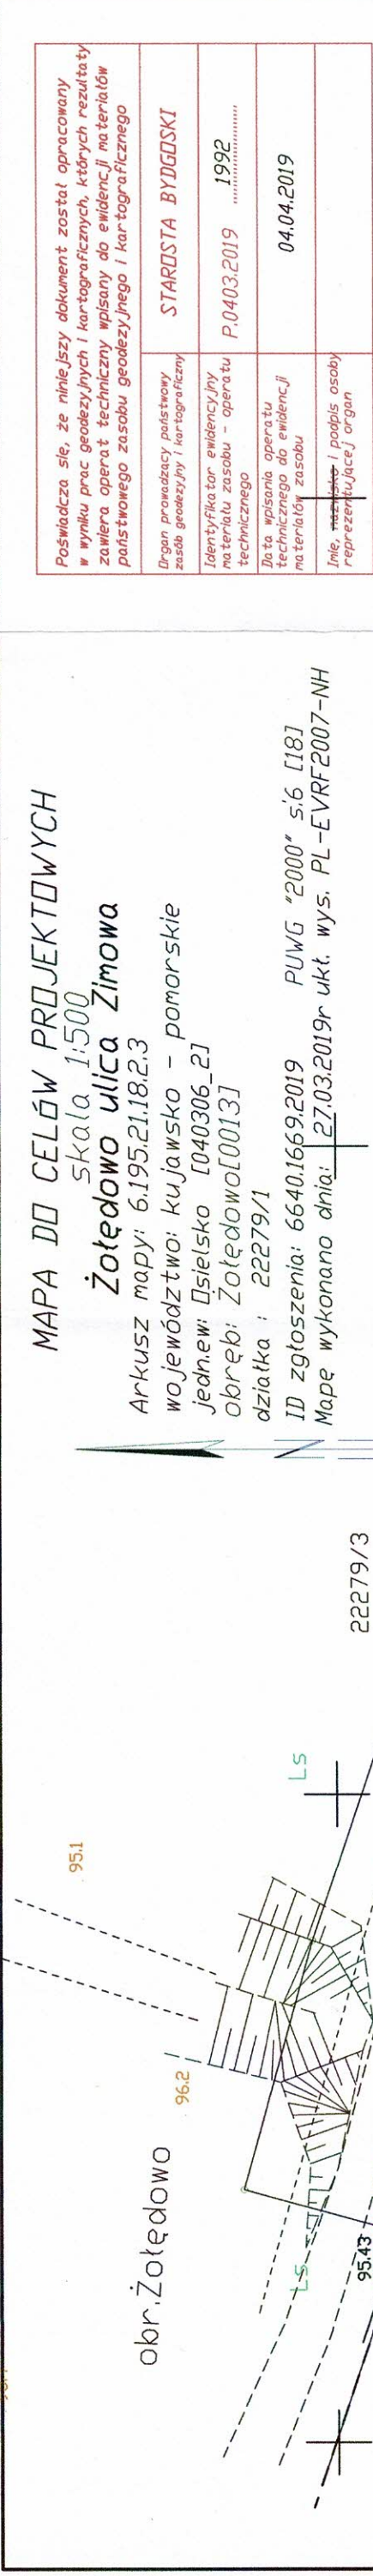 Poświadcza się, że niniejszy dokument został opracowany
w wyniku prac geodezyjnych i kartograficznych, których rezultaty
zawiera operat techniczny wpisany do ewidencji materiałów
państwowego zasobu geodezyjnego i kartograficznego
Organ prowadzący państwowy
zasób geodezyjny i kartograficzny
STAROSTA BYDGOSKI
Identyfikator ewidencyjny
materiału zasobu - operatu
technicznego
P.0403.2019 1992
Data wpisania operatu
technicznego do ewidencji
materiałów zasobu
04.04.2019
Imię, nazwisko i podpis osoby
reprezentującej organ
MAPA DO CELÓW PROJEKTOWYCH
skala 1:500
Żołędowo ulica Zimowa
Arkusz mapy: 6.195.21.18.2.3
województwo: kujawsko - pomorskie
jedn.ew: Osielsko [040306_2]
obręb: Żołędowo[0013]
działka : 22279/1
ID zgłoszenia: 6640.1669.2019 PUWG "2000" s.6 [18]
Mapę wykonano dnia: 27.03.2019r ukł. wys. PL-EVRF2007-NH
N
22279/3
Ls
95.1
96.2
obr.Żołędowo
Ls
95.43